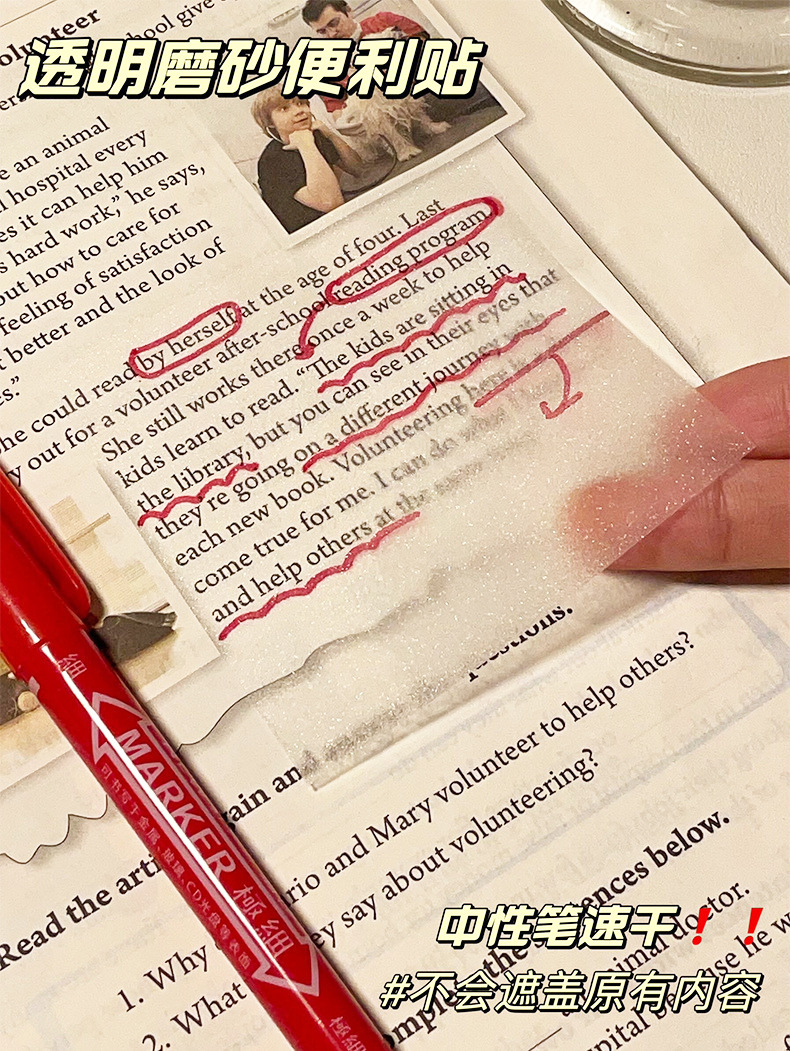 透明磨砂便利贴
olunteer
hool give
e an animal
l hospital every
es it can help him
s hard work,” he says,
out how to care for
feeling of satisfaction
t better and the look of
es.”
he could read by herself at the age of four. Last
y out for a volunteer after-school reading program.
She still works there once a week to help
kids learn to read. “The kids are sitting in
the library, but you can see in their eyes that
they're going on a different journey with
each new book. Volunteering here is
come true for me. I can do what I
and help others at the same
estions.
Read the arti
ain an
1. Why
rio and Mary volunteer to help others?
2. What
ey say about volunteering?
mple
the
ences below.
animal doctor.
pital
se he w
細
MARKER 極細
可书写于金属、玻璃、CD光盘等表面
極細
中性笔速干❗❗
#不会遮盖原有内容